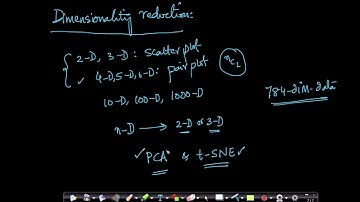 Dimensionality reduction:
2-D, 3-D : scatter plot
✓ 4-D, 5-D, 6-D : pair plot
nC2
10-D, 100-D, 1000-D
784-dim-data
n-D → 2-D or 3-D
✓PCA & t-SNE✓